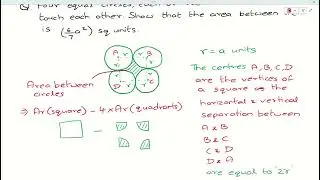 Q Four equal circles, each of
touch each other. Show that the area between
is (6/7 a²) sq units.
A B
r r
r r
D C
Area between
circles
r = a units
The centres A, B, C, D
are the vertices of
a square as the
horizontal & vertical
separation between
A & B
B & C
C & D
D & A
are equal to '2r'
⇒ Ar(square) - 4 × Ar(quadrants)